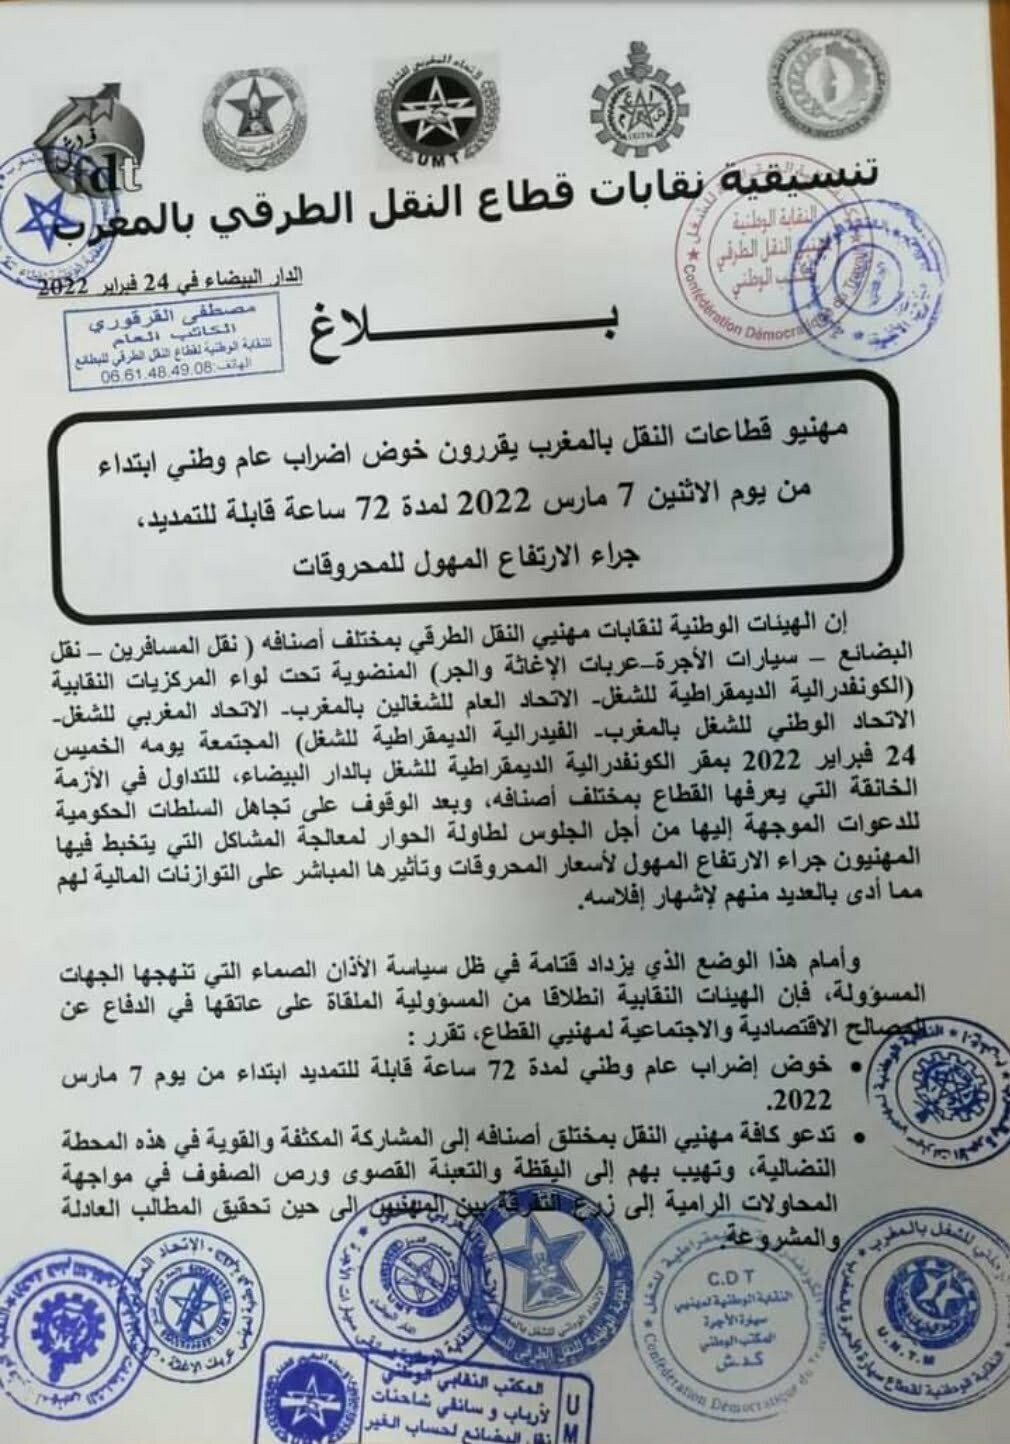 UMT
fdt
تنسيقية نقابات قطاع النقل الطرقي بالمغرب
النقابة الوطنية
النقل الطرقي
المكتب الوطني
Confédération Démocratique du Travail
الدار البيضاء في 24 فبراير 2022
مصطفى القرقوري
الكاتب العام
للنقابة الوطنية لقطاع النقل الطرقي للبضائع
الهاتف:06.61.48.49.08
بـــــــلاغ
مهنيو قطاعات النقل بالمغرب يقررون خوض اضراب عام وطني ابتداء
من يوم الاثنين 7 مارس 2022 لمدة 72 ساعة قابلة للتمديد،
جراء الارتفاع المهول للمحروقات
إن الهيئات الوطنية لنقابات مهنيي النقل الطرقي بمختلف أصنافه ( نقل المسافرين – نقل
البضائع – سيارات الأجرة–عربات الإغاثة والجر) المنضوية تحت لواء المركزيات النقابية
(الكونفدرالية الديمقراطية للشغل- الاتحاد العام للشغالين بالمغرب- الاتحاد المغربي للشغل-
الاتحاد الوطني للشغل بالمغرب- الفيدرالية الديمقراطية للشغل) المجتمعة يومه الخميس
24 فبراير 2022 بمقر الكونفدرالية الديمقراطية للشغل بالدار البيضاء، للتداول في الأزمة
الخانقة التي يعرفها القطاع بمختلف أصنافه، وبعد الوقوف على تجاهل السلطات الحكومية
للدعوات الموجهة إليها من أجل الجلوس لطاولة الحوار لمعالجة المشاكل التي يتخبط فيها
المهنيون جراء الارتفاع المهول لأسعار المحروقات وتأثيرها المباشر على التوازنات المالية لهم
مما أدى بالعديد منهم لإشهار إفلاسه.
وأمام هذا الوضع الذي يزداد قتامة في ظل سياسة الأذان الصماء التي تنهجها الجهات
المسؤولة، فإن الهيئات النقابية انطلاقا من المسؤولية الملقاة على عاتقها في الدفاع عن
المصالح الاقتصادية والاجتماعية لمهنيي القطاع، تقرر :
• خوض إضراب عام وطني لمدة 72 ساعة قابلة للتمديد ابتداء من يوم 7 مارس
2022.
• تدعو كافة مهنيي النقل بمختلق أصنافه إلى المشاركة المكثفة والقوية في هذه المحطة
النضالية، وتهيب بهم إلى اليقظة والتعبئة القصوى ورص الصفوف في مواجهة
المحاولات الرامية إلى زرع التفرقة بين المهنيين إلى حين تحقيق المطالب العادلة
والمشروعة.
C.D.T
النقابة الوطنية لمهنيي
سيارة الأجرة
المكتب الوطني
ك.د.ش
Confédération Démocratique du Travail
U.N.T.M
المكتب النقابي الوطني
لأرباب و سائقي شاحنات
نقل البضائع لحساب الغير
U
M